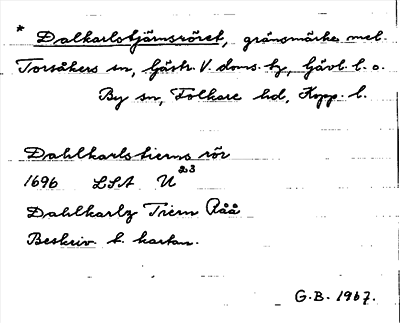 * Dalkarlstjärnsröret, gränsmärke mel.
Torsåkers sn, Gästr. V. doms. tg, Gävl. l. o.
By sn, Folkare hd, Kopp. l.
Dahlkarlstierns rör
1696 LSA U 23
Dahlkarlz Tiern Råå
Beskriv. t. kartan.
G.B. 1967.